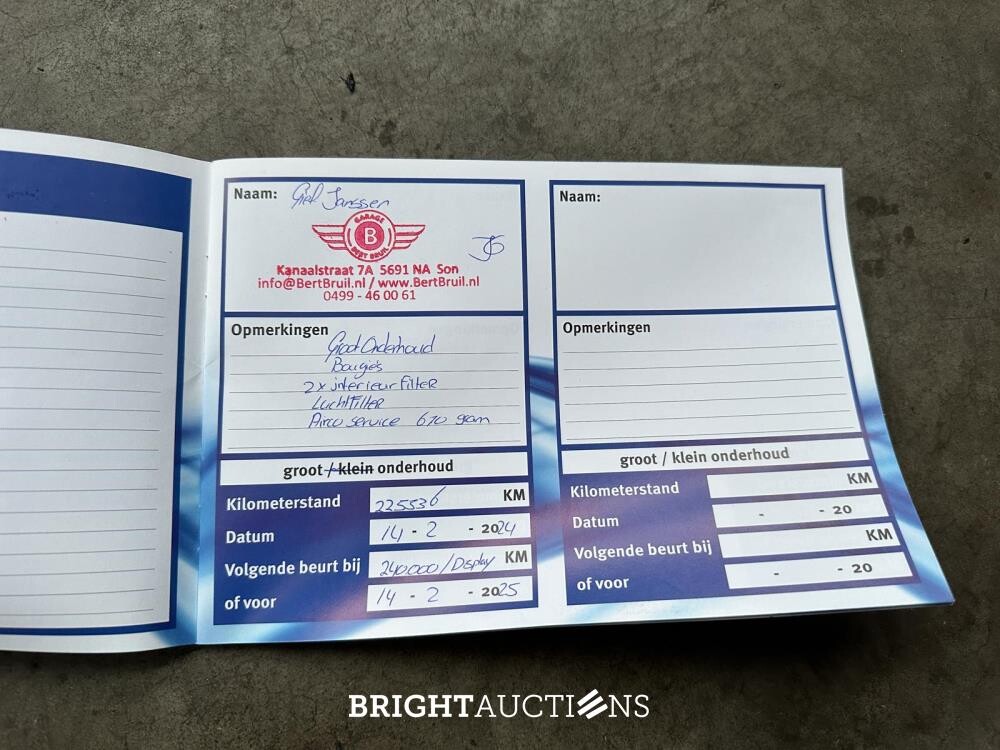 Naam: Giel Janssen
GARAGE
B
BERT BRUIL
Kanaalstraat 7A 5691 NA Son
info@BertBruil.nl / www.BertBruil.nl
0499 - 46 00 61
Opmerkingen
Groot Onderhoud
Bougies
2x interieur filter
Luchtfilter
Airco service 670 gram
groot / klein onderhoud
Kilometerstand 225536 KM
Datum 14 - 2 - 2024
Volgende beurt bij 240000 / Display KM
of voor 14 - 2 - 2025
Naam:
Opmerkingen
groot / klein onderhoud
Kilometerstand KM
Datum - - 20
Volgende beurt bij KM
of voor - - 20
BRIGHTAUCTIONS